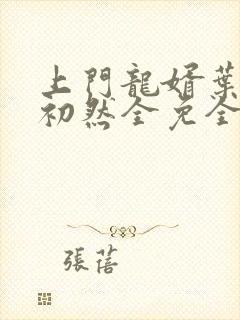 上門龍婿葉
初然全免全
張蓓